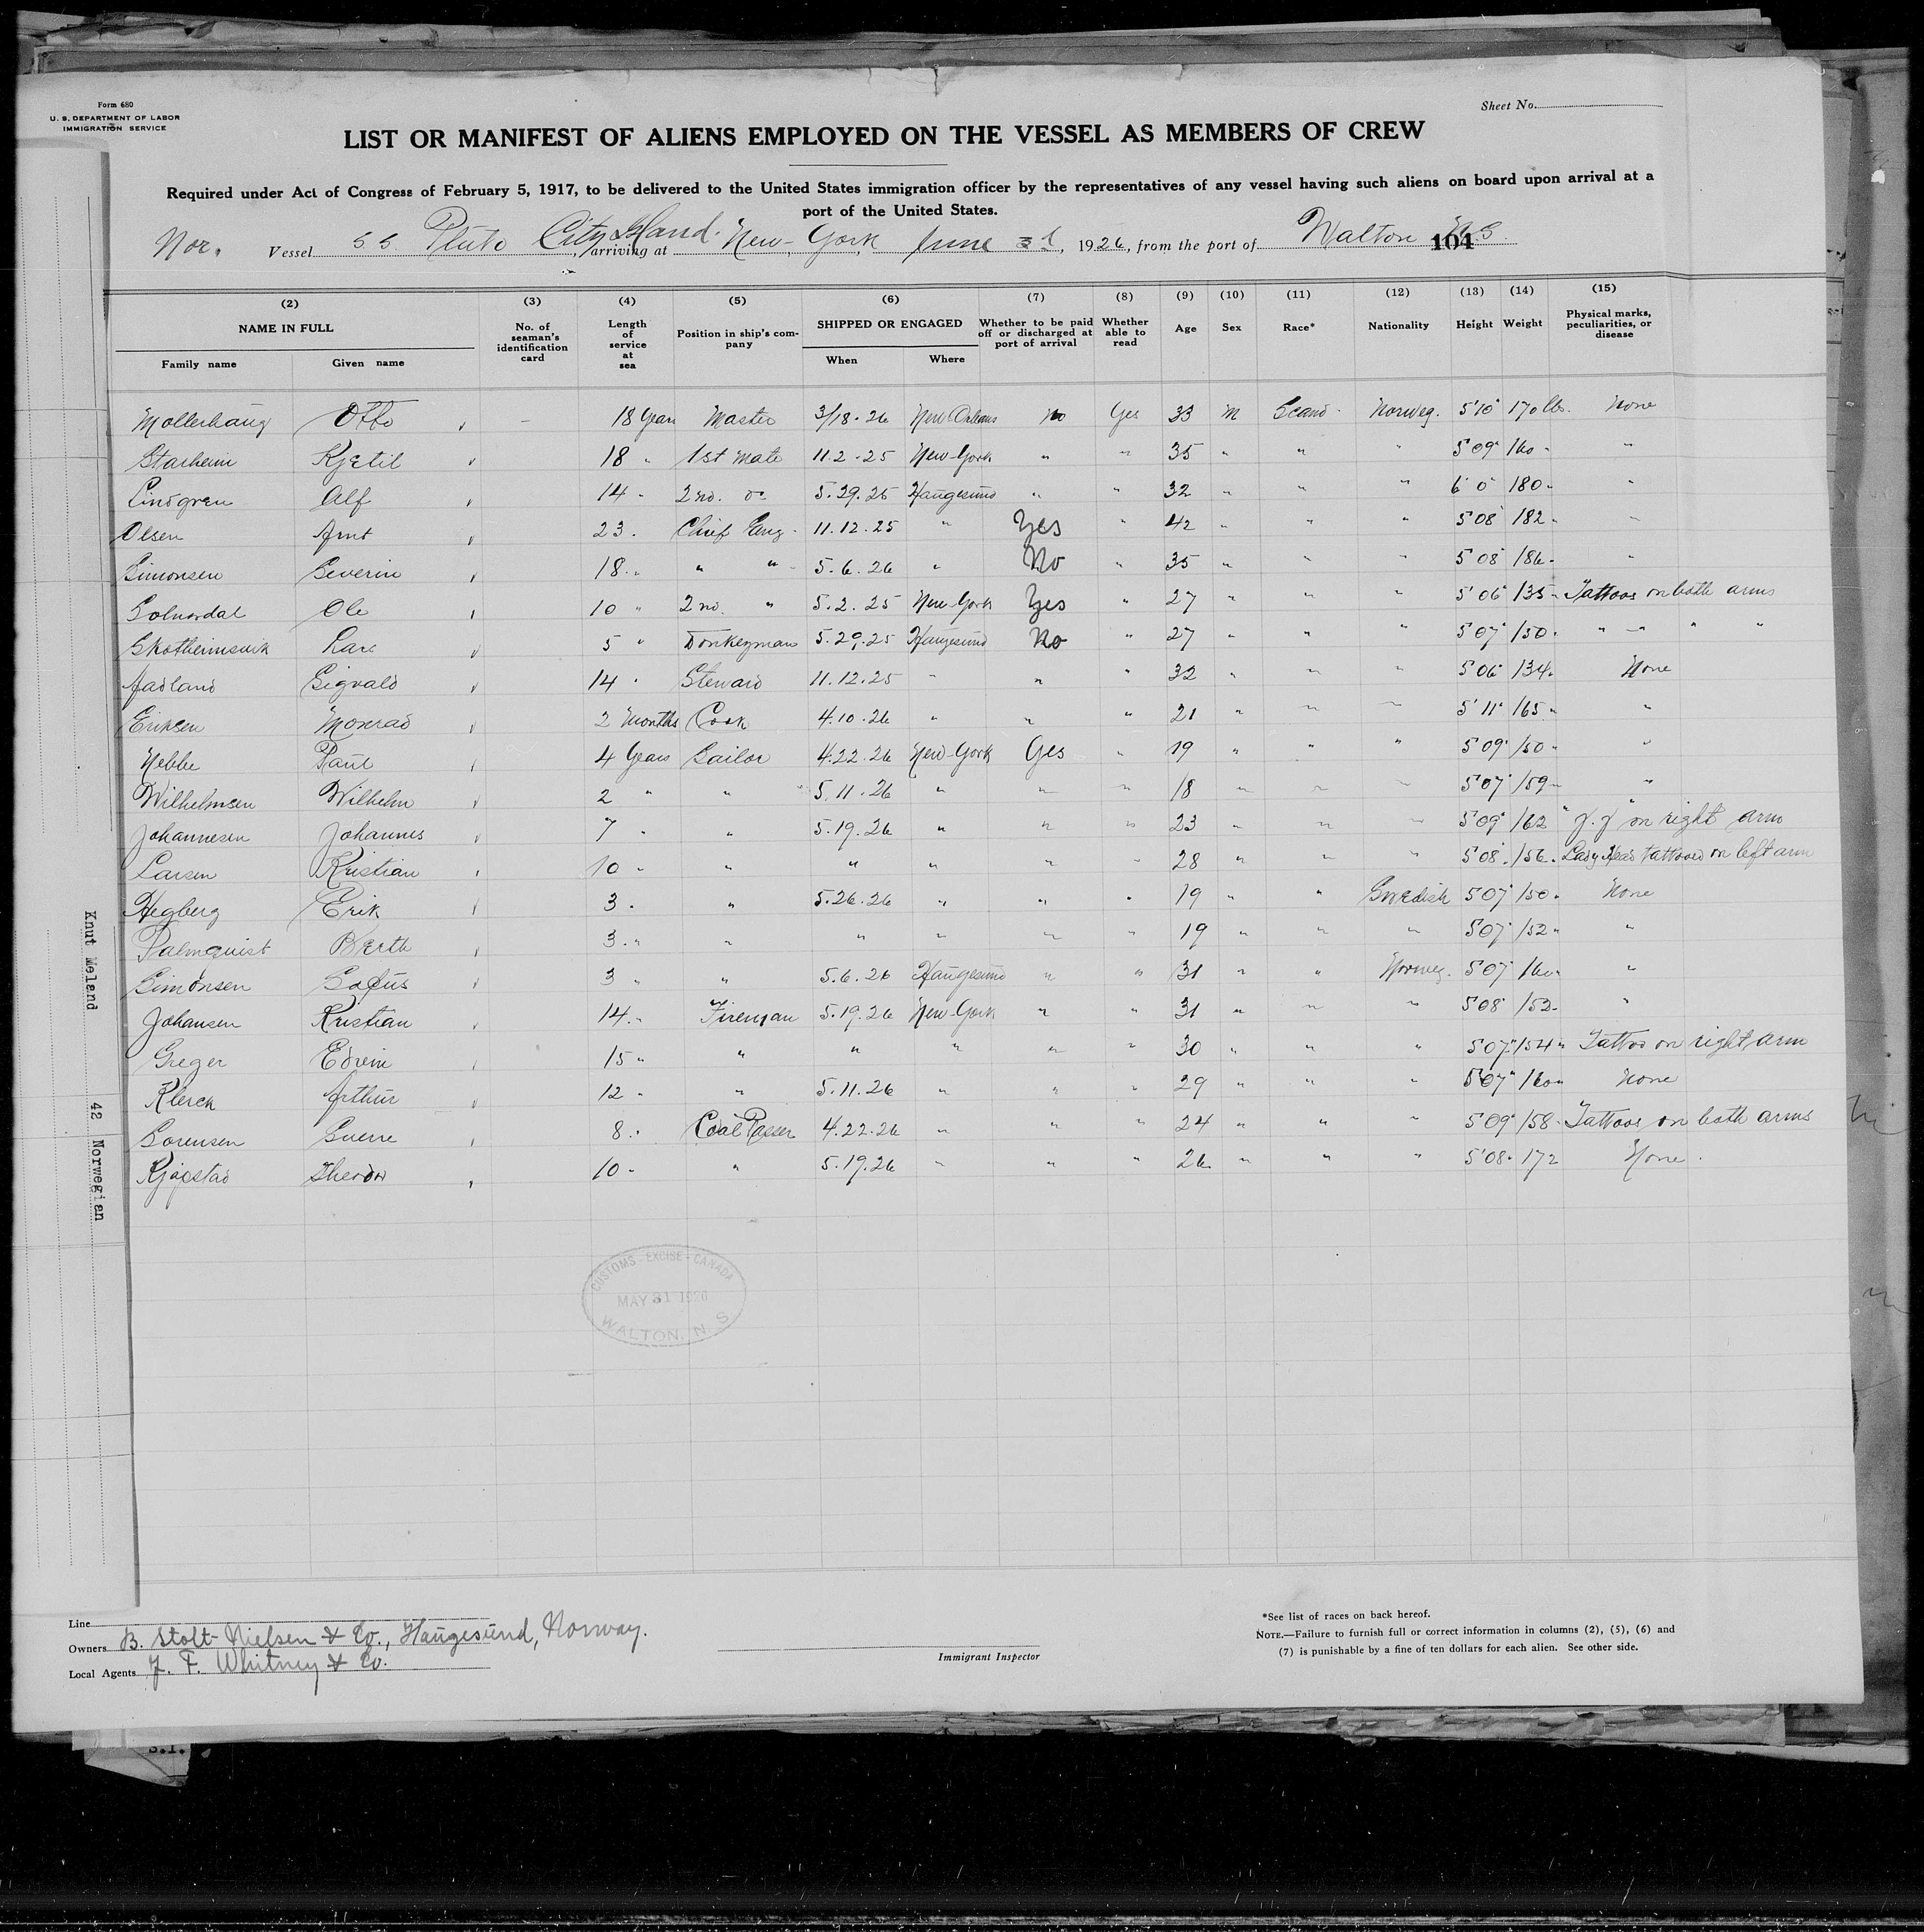 Form 680
U. S. DEPARTMENT OF LABOR
IMMIGRATION SERVICE
Sheet No.
LIST OR MANIFEST OF ALIENS EMPLOYED ON THE VESSEL AS MEMBERS OF CREW
Required under Act of Congress of February 5, 1917, to be delivered to the United States immigration officer by the representatives of any vessel having such aliens on board upon arrival at a
port of the United States.
Nor. Vessel SS. Pluto City Island, arriving at New-York, June, 1926, from the port of Walton N.S. 104
(2) (3) (4) (5) (6) (7) (8) (9) (10) (11) (12) (13) (14) (15)
NAME IN FULL No. of seaman's identification card Length of service at sea Position in ship's company SHIPPED OR ENGAGED Whether to be paid off or discharged at port of arrival Whether able to read Age Sex Race* Nationality Height Weight Physical marks, peculiarities, or disease
Family name Given name When Where
Mollerhaug Otto - 18 Years Master 3/18-26 New Orleans No Yes 33 M Scand. Norweg. 5'10" 170 lbs. None
Starheim Kjetil 18 " 1st Mate 11.2.25 New-York " " 35 " " " 5'09" 160 " "
Lindgren Alf 14 " 2nd. do 5.29.25 Haugesund " " 32 " " " 6'0" 180 " "
Olsen Arnt 23 " Chief Eng. 11.12.25 " Yes " 42 " " " 5'08" 182 " "
Simonsen Severin 18 " " " 5.6.26 " No " 35 " " " 5'08" 186 " "
Solnordal Ole 10 " 2nd. " 5.2.25 New-York Yes " 27 " " " 5'06" 135 " Tattoos on both arms
Skotheimsvik Lars 5 " Donkeyman 5.29.25 Haugesund No " 27 " " " 5'07" 150 " " " " "
Sigvald 14 " Steward 11.12.25 " " " 32 " " " 5'06" 134 " None
Eriksen Monrad 2 Months Cook 4.10.26 " " " 21 " " " 5'11" 165 " "
Nebbe Paul 4 Years Sailor 4.22.26 New-York Yes " 19 " " " 5'09" 150 " "
Wilhelmsen Wilhelm 2 " " 5.11.26 " " " 18 " " " 5'07" 159 " "
Johannesen Johannes 7 " " 5.19.26 " " " 23 " " " 5'09" 162 "J.J" on right arm
Larsen Kristian 10 " " " " " " 28 " " " 5'08" 156 " Lady Head tattooed on left arm
Hegberg Erik 3 " " 5.26.26 " " " 19 " " Swedish 5'07" 150 " None
Palmquist Berth 3 " " " " " " 19 " " " 5'07" 152 " "
Simonsen Sofus 3 " " 5.6.26 Haugesund " " 31 " " Norweg. 5'07" 160 " "
Johansen Kristian 14 " Fireman 5.19.26 New-York " " 31 " " " 5'08" 152 " "
Greger Edvin 15 " " " " " " 30 " " " 5'07" 154 " Tattoo on right arm
Klerck Arthur 12 " " 5.11.26 " " " 29 " " " 5'07" 160 " None
Sorensen 8 " Coal Passer 4.22.26 " " " 24 " " " 5'09" 158 " Tattoos on both arms
10 " " 5.19.26 " " " 26 " " " 5'08" 172 None.
Knut Meland 42 Norwegian
CUSTOMS-EXCISE-CANADA
MAY 31 1926
WALTON, N. S.
Line
Owners B. Stolt-Nielsen & Co., Haugesund, Norway.
Local Agents J. F. Whitney & Co.
Immigrant Inspector
*See list of races on back hereof.
NOTE.—Failure to furnish full or correct information in columns (2), (5), (6) and
(7) is punishable by a fine of ten dollars for each alien. See other side.
S.I.